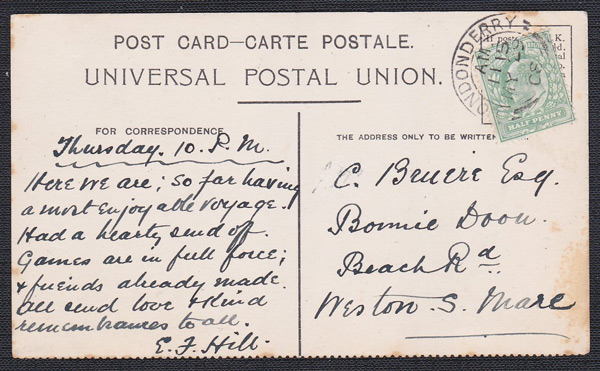 POST CARD—CARTE POSTALE.
UNIVERSAL POSTAL UNION.
LONDONDERRY
HALF PENNY
FOR CORRESPONDENCE
Thursday. 10. P.M.
Here we are; so far having
a most enjoyable voyage.
Had a hearty send off.
Games are in full force;
& friends already made.
All send love & kind
remembrances to all.
E. F. Hill.
THE ADDRESS ONLY TO BE
C. Bruere Esq.
Bonnie Doon.
Beach Rd
Weston. S. Mare